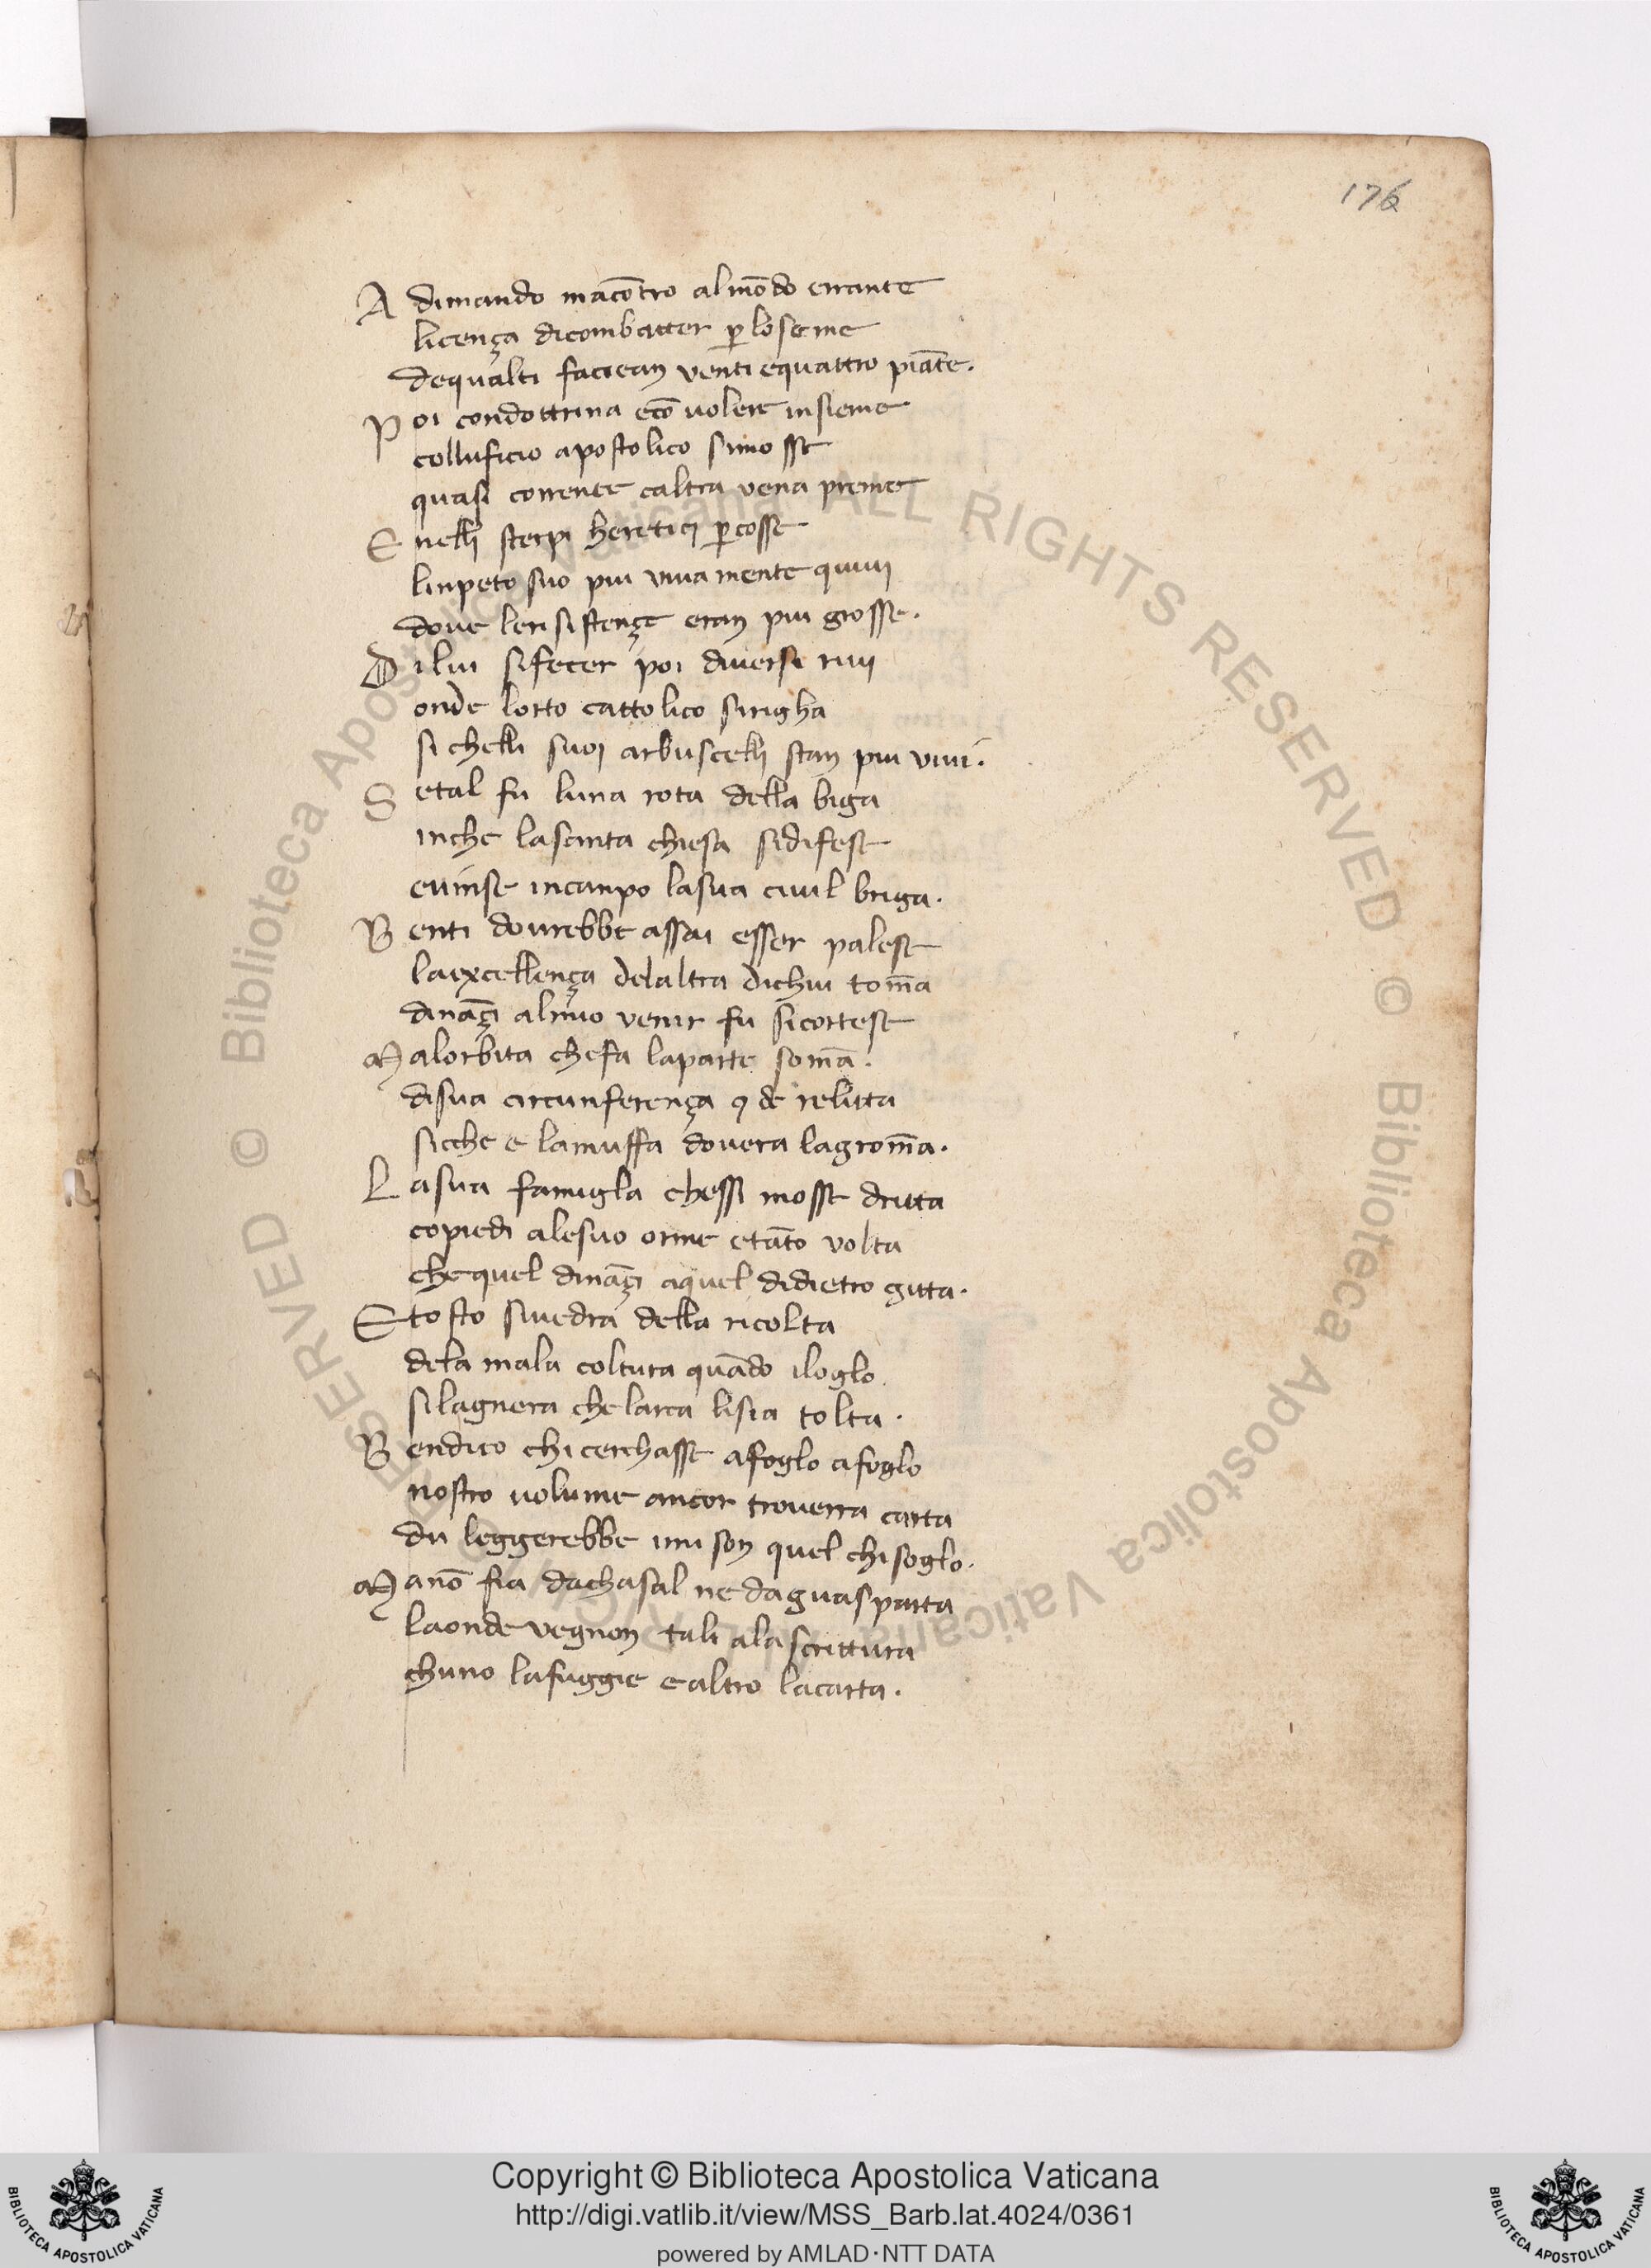 176
A dimando macōtro almōdo errante
licença dicombatter ꝑ loseme
dequalti facrean venti equattro piāte.
P oi condottrina ecō uolere insieme
colluficio apostolico simosse
quasi corrente caltra vena preme
E nelli sterpi heretici ꝑcosse
linpeto suo piu viua mente quiui
doue leresistençe eran piu grosse.
D ilui sifecer poi diuersi riui
onde lorto cattolico sirigha
si chelli suoi arbuscelli stan piu viui.
S etal fu luna rota della biga
inche lasanta chiesa sidifese
euinse incanpo lasua ciuil briga.
B enti dourebbe assai esser palese
laexcellença delaltra dichui tom̄a
dināçi almio venir fu sicortese
M alorbita chefa laparte som̄a.
disua circunferença ꝯ de relitta
sicche e lamuffa douera lagrom̄a.
L asua famigla chessi mosse dritta
copiedi alesuo orme etāto volta
chequel dināçi aquel didietro gitta.
E tosto siuedra della ricolta
dela mala coltura quādo iloglo
silagnera chelarca lisia tolta.
B endico chi cerchasse afoglo afoglo
nostro uolume ancor trouerra carta
du leggerebbe imi son quel chisoglo.
M anō fia dachasal ne daguasparta
laonde vegnon tali alascrittura
chuno lafuggie e altro lacarta.
© Biblioteca Apostolica Vaticana ALL RIGHTS RESERVED © Biblioteca Apostolica Vaticana ALL RIGHTS RESERVED
BIBLIOTECA APOSTOLICA VATICANA
Copyright © Biblioteca Apostolica Vaticana
http://digi.vatlib.it/view/MSS_Barb.lat.4024/0361
powered by AMLAD·NTT DATA
BIBLIOTECA APOSTOLICA VATICANA